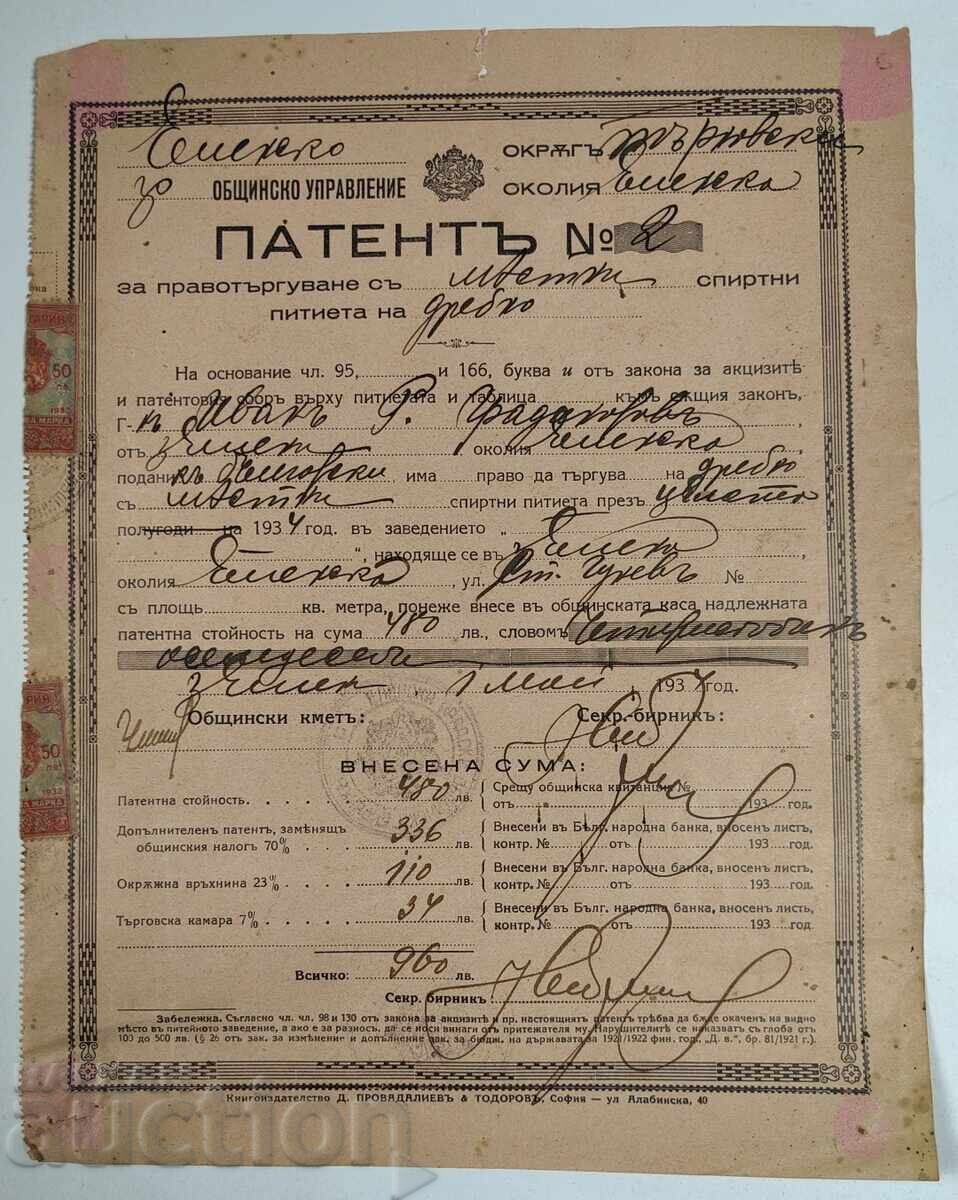 Еленско ОКРѪГЪ Търновски
ОБЩИНСКО УПРАВЛЕНИЕ ОКОЛИЯ Еленска
ПАТЕНТЪ № 2
за правотъргуване съ местни спиртни
питиета на дребно
На основание чл. 95, и 166, буква и отъ закона за акцизитѣ
и патентовия сборъ върху питиетата и таблица къмъ сѫщия законъ,
Г-нъ Иванъ Р.
отъ Елена околия Еленска
поданикъ български, има право да търгува на дребно
съ местни спиртни питиета презъ цялата
полугоди на 1934 год. въ заведението „
“, находяще се въ Елена
околия Еленска, ул. Ст. №
съ площь кв. метра, понеже внесе въ общинската каса надлежната
патентна стойность на сума 480 лв., словомъ Четиристотинъ
осемдесетъ
Елена, 1 май, 1934 год.
Общински кметъ: Секр.-бирникъ:
ВНЕСЕНА СУМА:
Патентна стойность 480 лв. Срещу общинска квитанция №
отъ 193 год.
Допълнителенъ патентъ, замѣнящъ
общинския налогъ 70% 336 лв. Внесени въ Бълг. народна банка, вносенъ листъ,
контр. № отъ 193 год.
Окрѫжна връхнина 23% 110 лв. Внесени въ Бълг. народна банка, вносенъ листъ,
контр. № отъ 193 год.
Търговска камара 7% 34 лв. Внесени въ Бълг. народна банка, вносенъ листъ,
контр. № отъ 193 год.
Всичко: 960 лв.
Секр. бирникъ
Забележка. Съгласно чл. чл. 98 и 130 отъ закона за акцизитѣ и пр. настоящиятъ патентъ трѣбва да бѫде окаченъ на видно
мѣсто въ питейното заведение, а ако е за разносъ, да се носи винаги отъ притежателя му. Нарушителитѣ се наказватъ съ глоба отъ
100 до 500 лв. (§ 26 отъ зак. за изменение и допълнение зак. за бюдж. на държавата за 1921/1922 фин. год. „Д. в.“, бр. 81/1921 г.).
Книгоиздателство Д. ПРОВАДАЛИЕВЪ & ТОДОРОВЪ, София — ул Алабинска, 40
50
50
auction